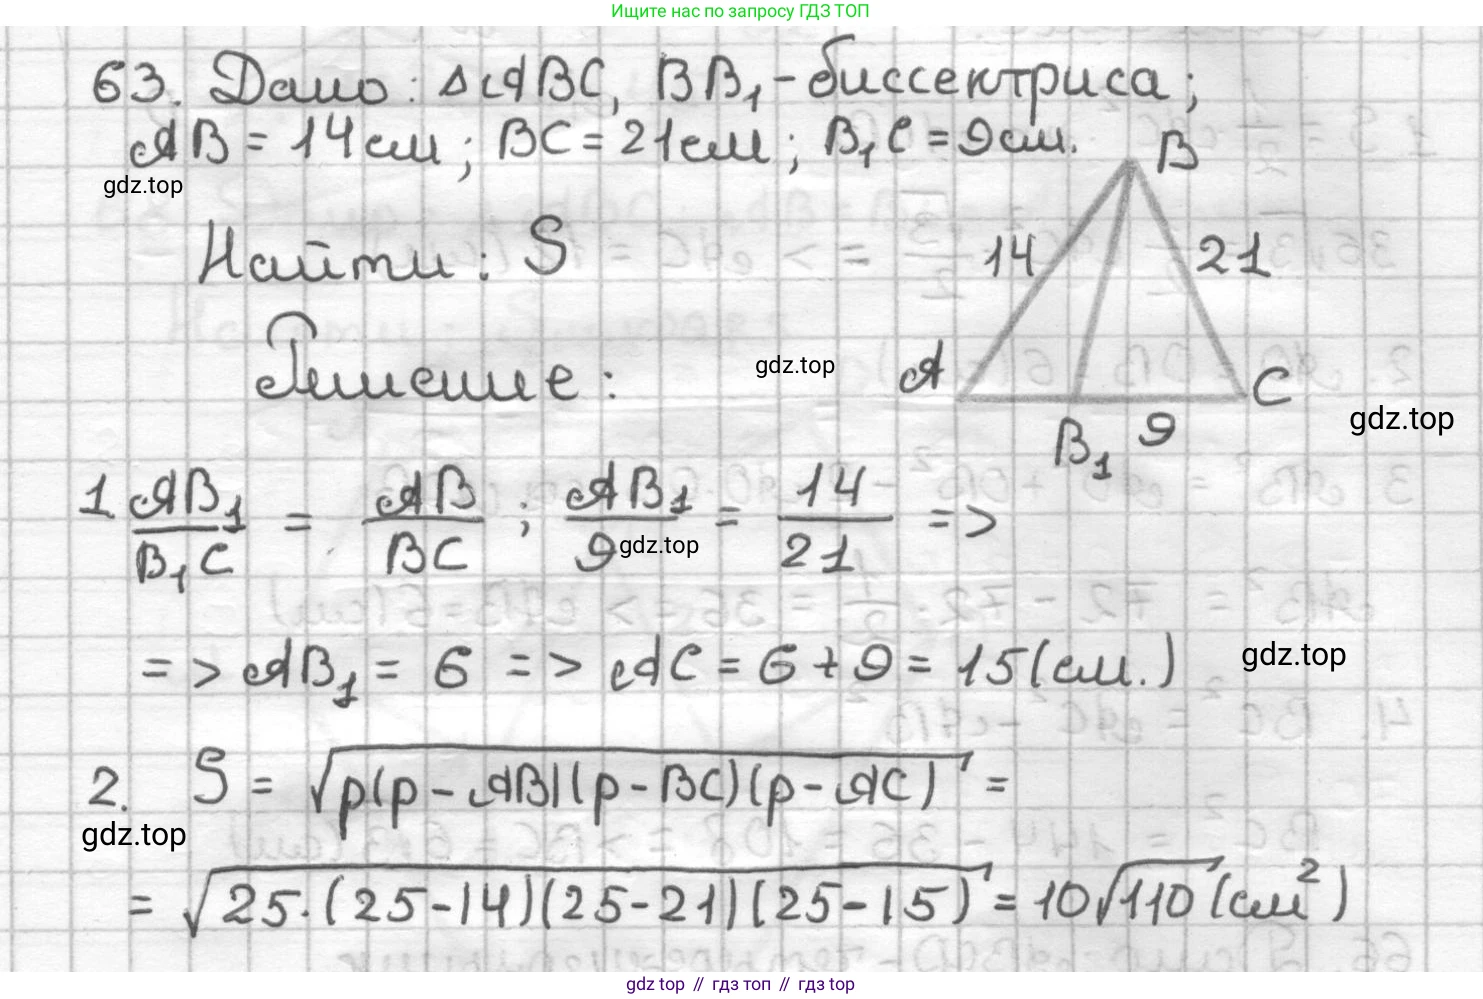 Ищите нас по запросу ГДЗ ТОП
63. Дано: △ABC, BB₁ - биссектриса;
AB = 14 см; BC = 21 см; B₁C = 9 см.
gdz.top
B
Найти: S
14
21
Решение:
gdz.top
A
C
gdz.top
B₁
9
1. AB₁/B₁C = AB/BC ; AB₁/9 = 14/21 =>
gdz.top
=> AB₁ = 6 => AC = 6 + 9 = 15 (см.)
gdz.top
2. S = √(p(p - AB)(p - BC)(p - AC)) =
gdz.top
= √(25·(25-14)(25-21)(25-15)) = 10√110 (см²)
gdz top // гдз топ // гдз top